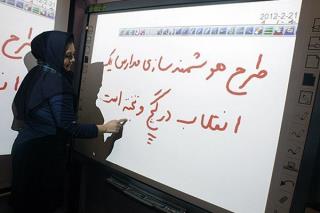 2012-2-21
طرح هوشمندسازی مدارس یک
انقلاب در گچ و تخته است
طرح